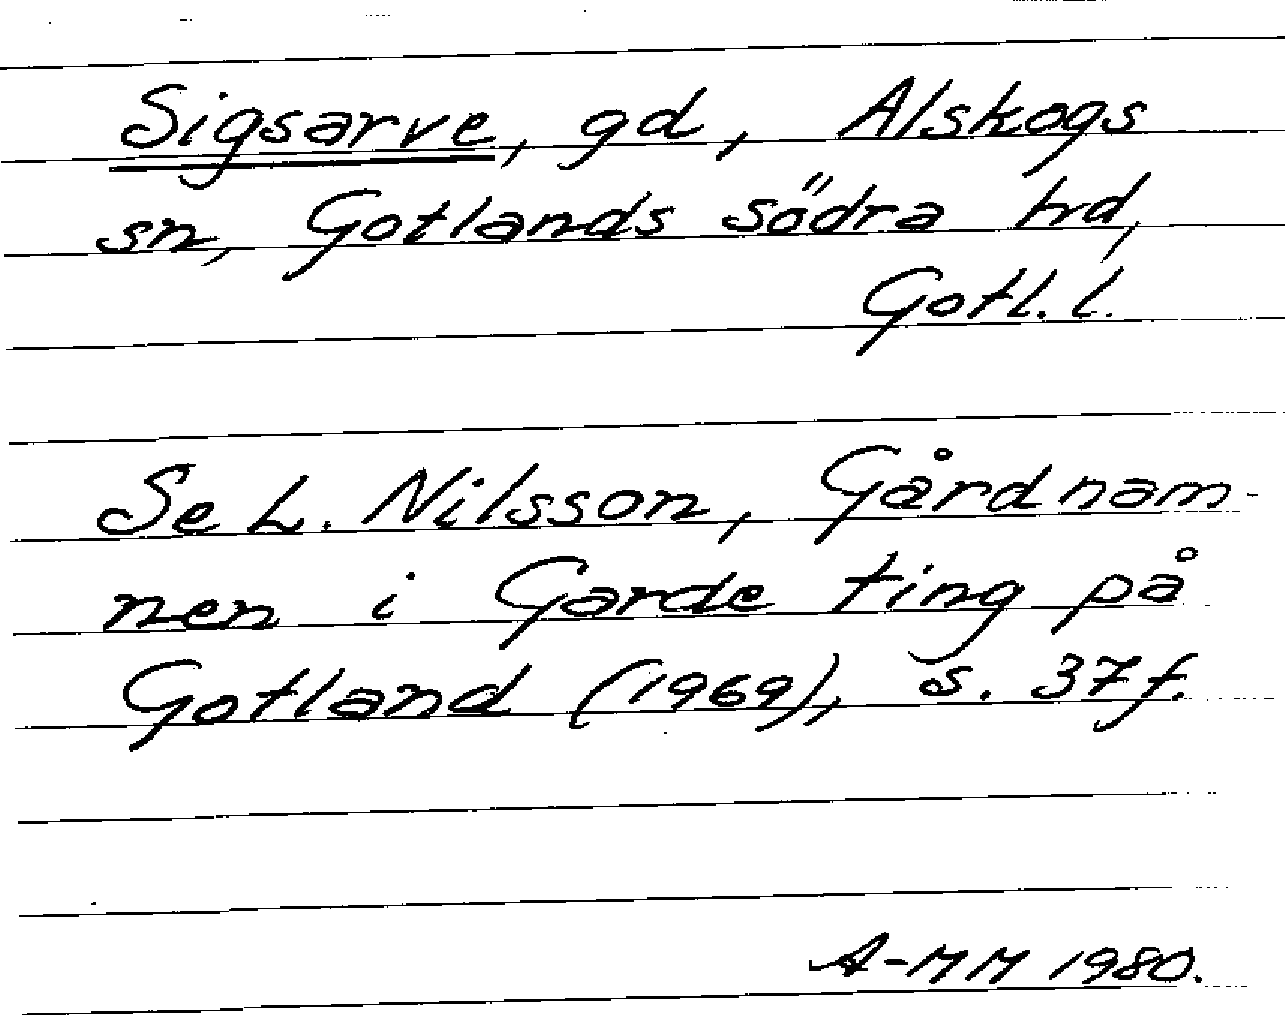 Sigsarve, gd, Alskogs
sn, Gotlands södra hd,
Gotl. l.
Se L. Nilsson, Gårdnam-
nen i Garde ting på
Gotland (1969), s. 37 f.
A-MM 1980.